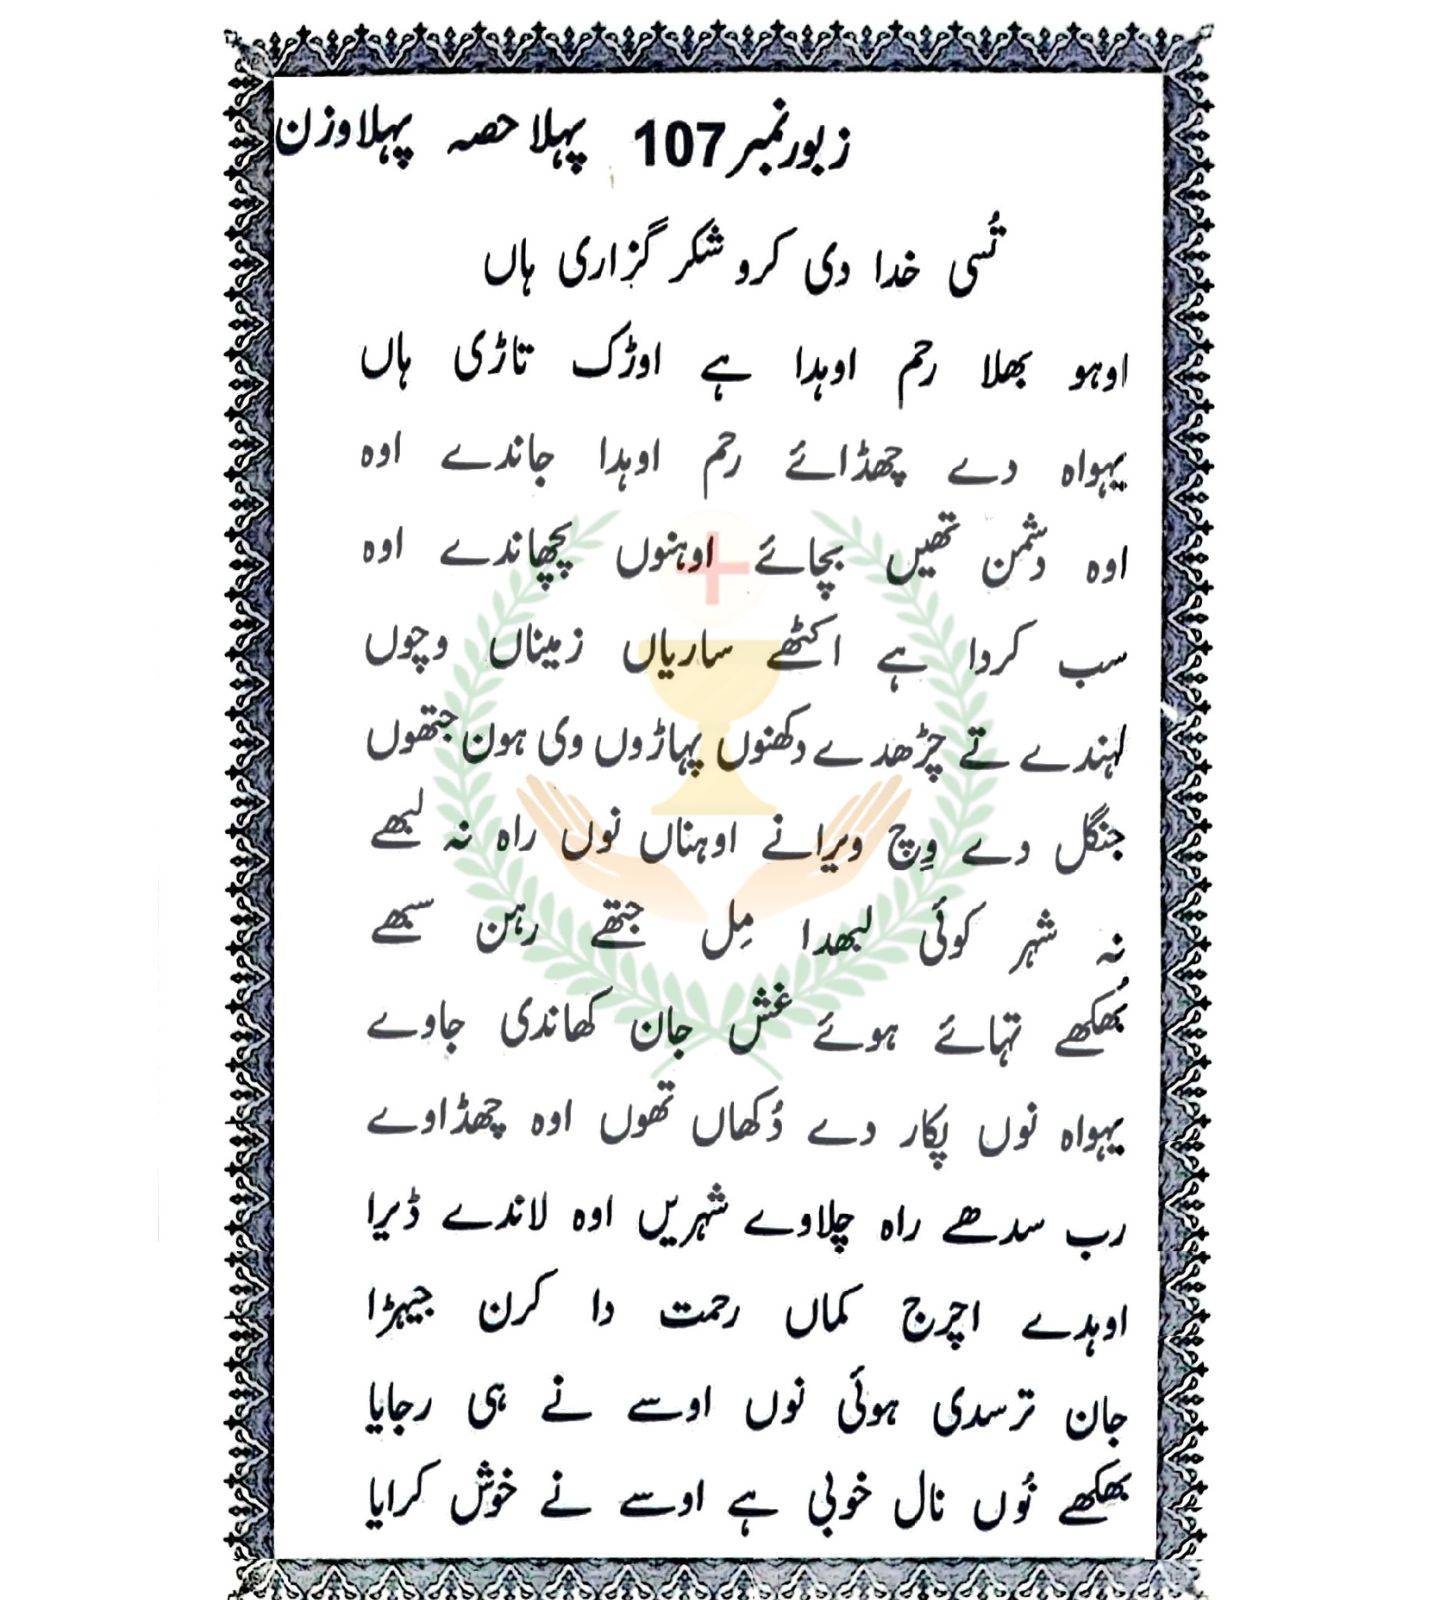 زبور نمبر 107 پہلا حصہ پہلا وزن
تُسی خدا دی کرو شکر گزاری ہاں
اوہو بھلا رحم اوہدا ہے اوڑک تاڑی ہاں
یہواہ دے چھڈائے رحم اوہدا جاندے اوہ
اوہ دشمن تھیں بچائے اوہنوں پچھاندے اوہ
سب کردا ہے اکٹھے ساریاں زمیناں وچوں
لہندے تے چڑھدے دکھنوں پہاڑوں وی ہون جتھوں
جنگل دے وِچ ویرانے اوہناں نوں راہ نہ لبھے
نہ شہر کوئی لبھدا مِل جتھے رہن سبھے
بُھکھے تہائے ہوئے غش جان کھاندی جاوے
یہواہ نوں پکار دے دُکھاں تھوں اوہ چھڈاوے
رب سدھے راہ چلاوے شہریں اوہ لاندے ڈیرا
اوہدے اچرج کماں رحمت دا کرن جیہڑا
جان ترسدی ہوئی نوں اوسے نے ہی رجایا
بھکھے نُوں نال خوبی ہے اوسے نے خوش کرایا